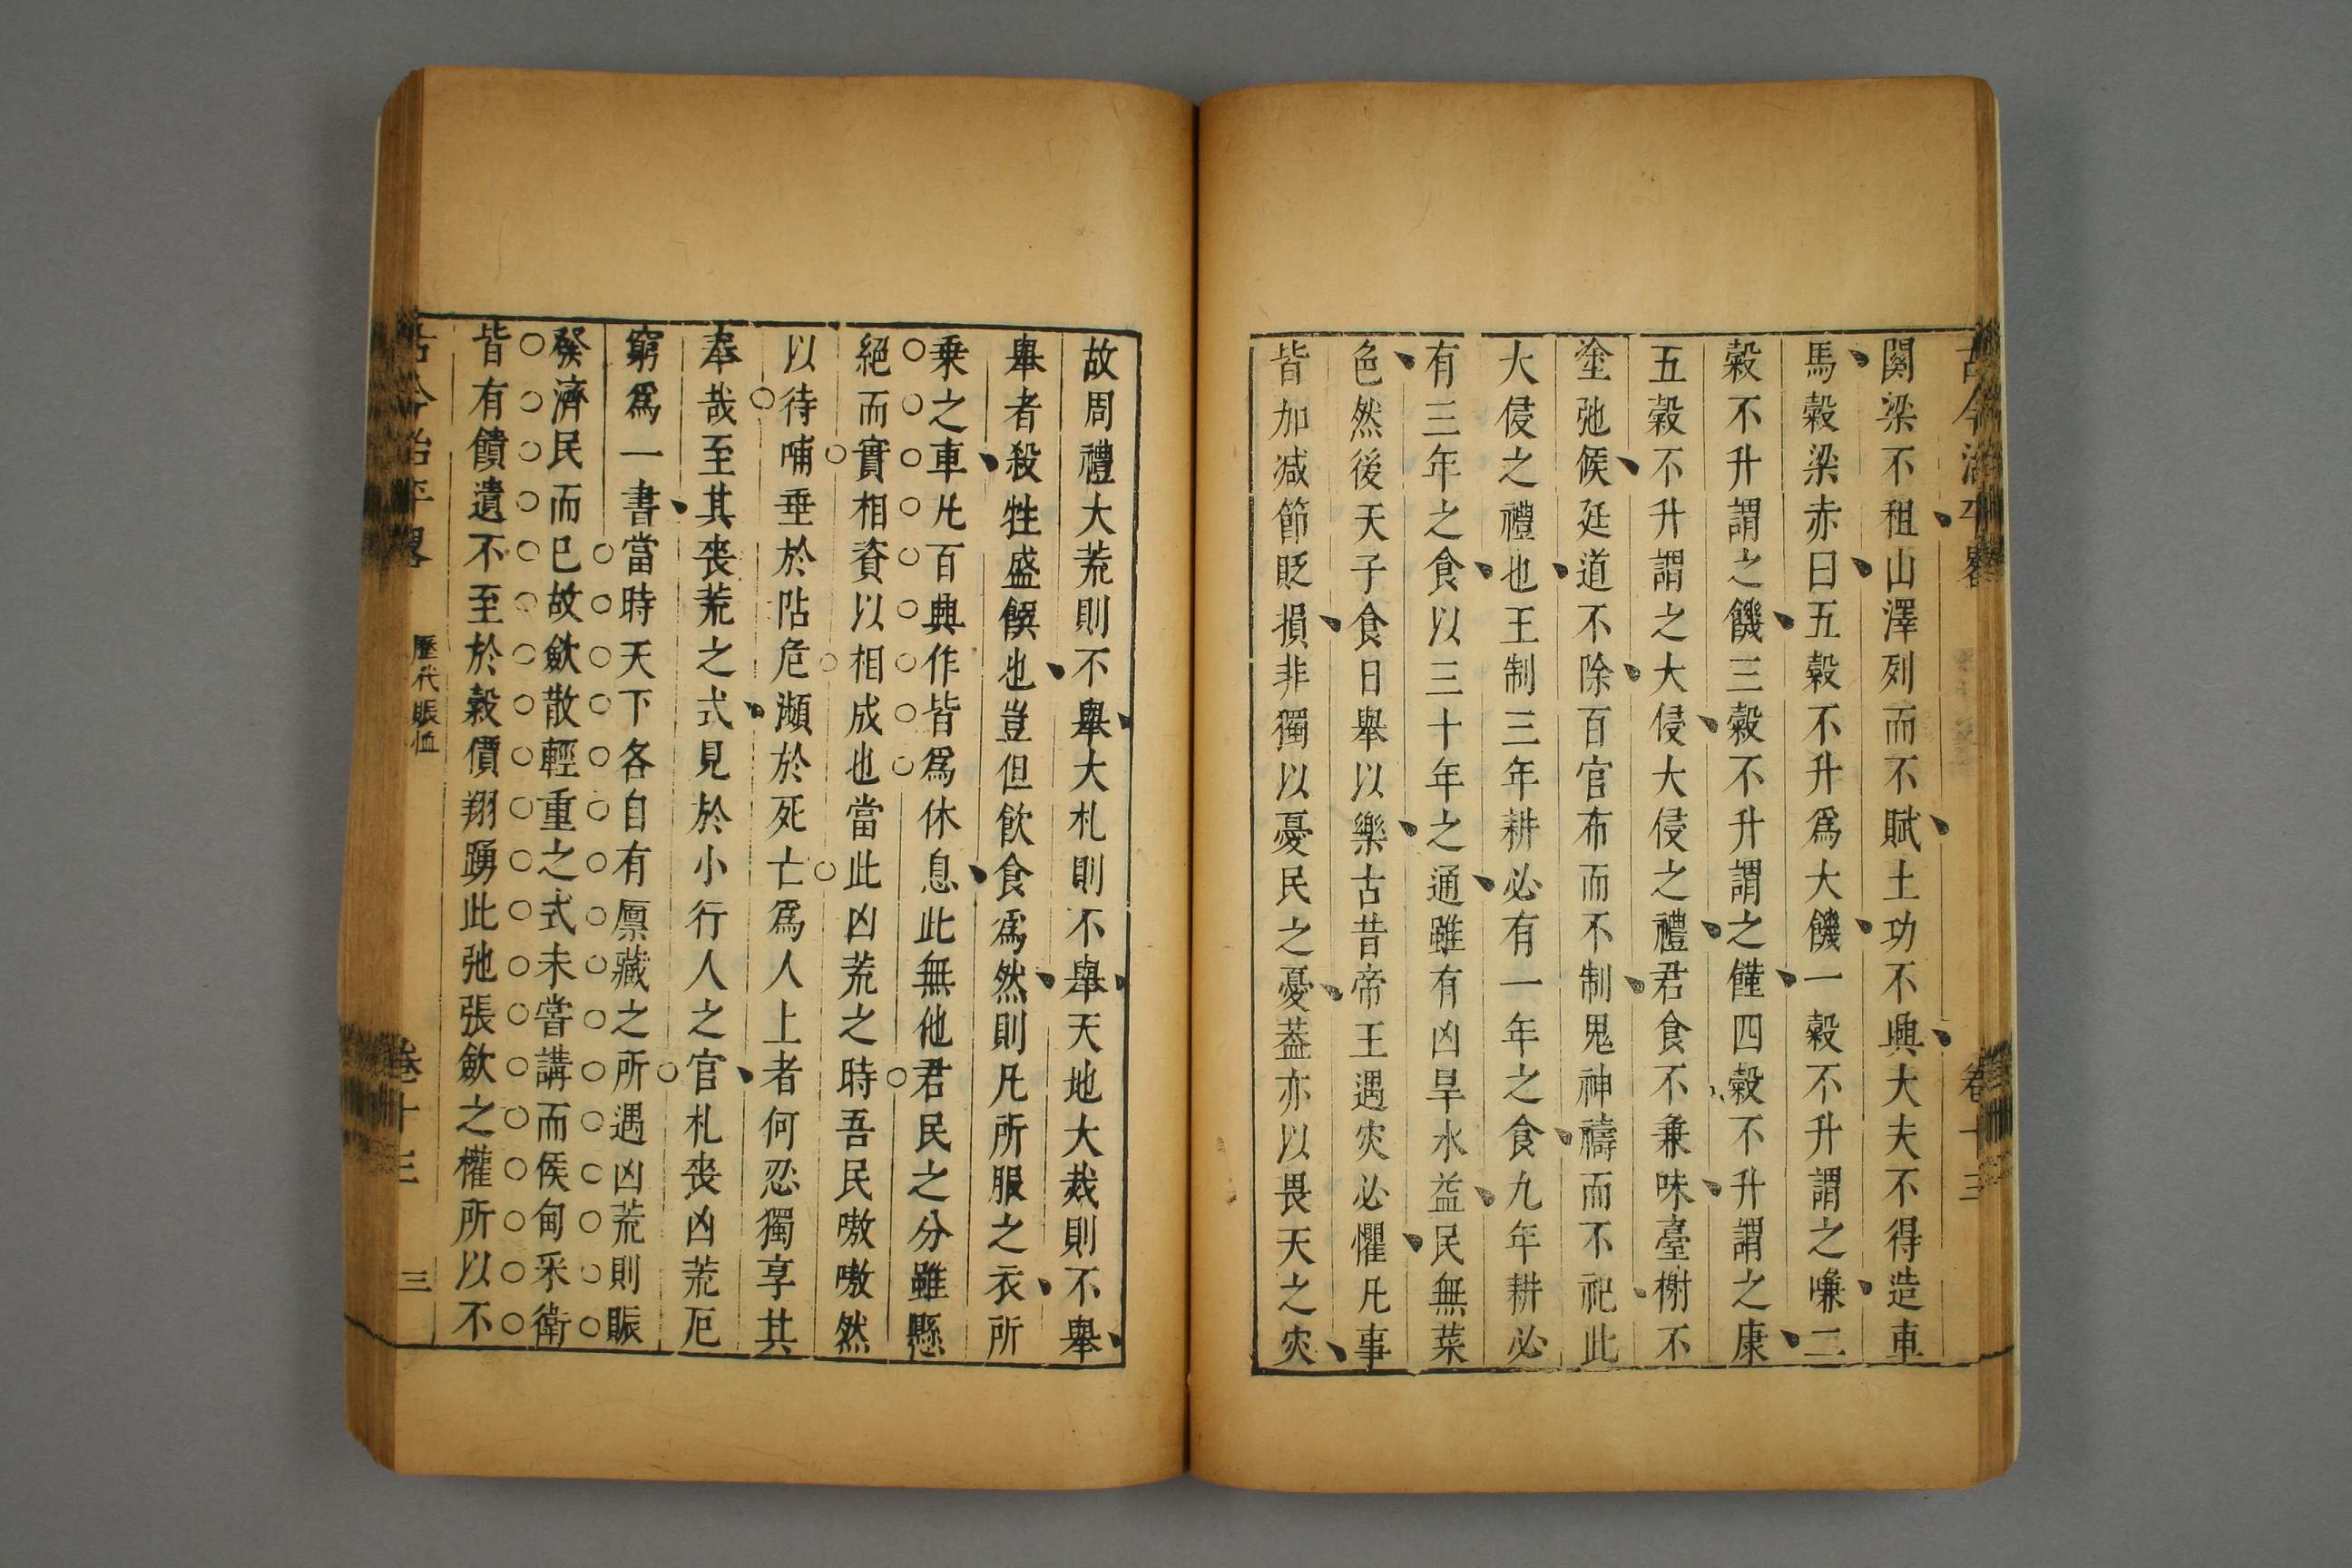 古今治平畧 卷十三
関梁不租山澤列而不賦土功不興大夫不得造車
馬穀梁赤曰五穀不升爲大饑一穀不升謂之嗛二
穀不升謂之饑三穀不升謂之饉四穀不升謂之康
五穀不升謂之大侵大侵之禮君食不兼味臺榭不
塗弛候廷道不除百官布而不制鬼神禱而不祀此
大侵之禮也王制三年耕必有一年之食九年耕必
有三年之食以三十年之通雖有凶旱水益民無菜
色然後天子食日舉以樂古昔帝王遇灾必懼凡事
皆加减節貶損非獨以憂民之憂葢亦以畏天之灾
故周禮大荒則不舉大札則不舉天地大烖則不舉
舉者殺牲盛饌也豈但飲食爲然則凡所服之衣所
乗之車凡百興作皆爲休息此無他君民之分雖懸
絕而實相資以相成也當此凶荒之時吾民嗷嗷然
以待哺垂於阽危濒於死亡爲人上者何忍獨享其
奉哉至其喪荒之式見於小行人之官札喪凶荒厄
窮爲一書當時天下各自有廪藏之所遇凶荒則賑
發濟民而已故斂散輕重之式未甞講而侯甸采衛
皆有饋遺不至於穀價翔踴此弛張斂之權所以不
古今治平畧 歷代賑恤 卷十三 三